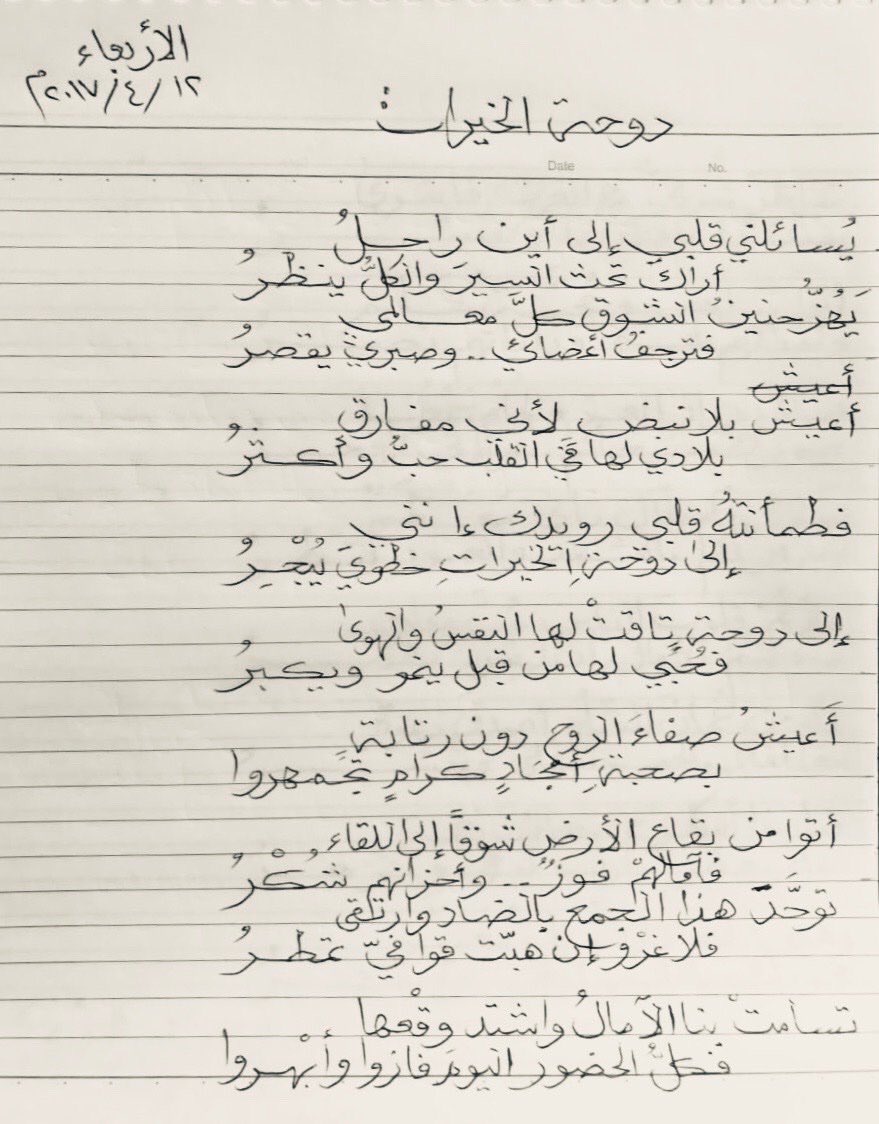 الأربعاء
١٢/٤/٢٠١٧م
دوحة الخيرات
Date No.
يُسائلني قلبي إلى أين راحلُ
أراكَ تحث السيرَ والكلُّ ينظرُ
يَهُزُّ حنينُ الشوقِ كلَّ معالمي
فترجفُ أعضائي .. وصبريْ يقصرُ
أعيش
أعيشُ بلا نبضٍ لأني مفارق
بلادي لها في القلب حبٌّ وأكثرُ
فطمأنتهُ قلبي رويدك إنني
إلى دَوْحَةِ الخيراتِ خطويَ يُبْحِرُ
إلى دوحةٍ تاقتْ لها النفسُ والهوىٰ
فحُبي لها من قبل ينمو ويكبرُ
أَعيشُ صفاءَ الروحِ دون رتابةٍ
بصحبةِ أمجادٍ كرامٍ تجمهروا
أتوا من بقاع الأرضِ شوقاً إلى اللقاء
فآمالهمْ فوزٌ .. وأحزانهم شُكْرُ
توحَّدَ هذا الجمع بالضاد وارتقى
فلا غرْوَ إن هبّت قوافيّ تمطرُ
تسامتْ بنا الآمالُ واشتد وقْعها
فكلُّ الحضور اليومَ فازوا وأبْهروا